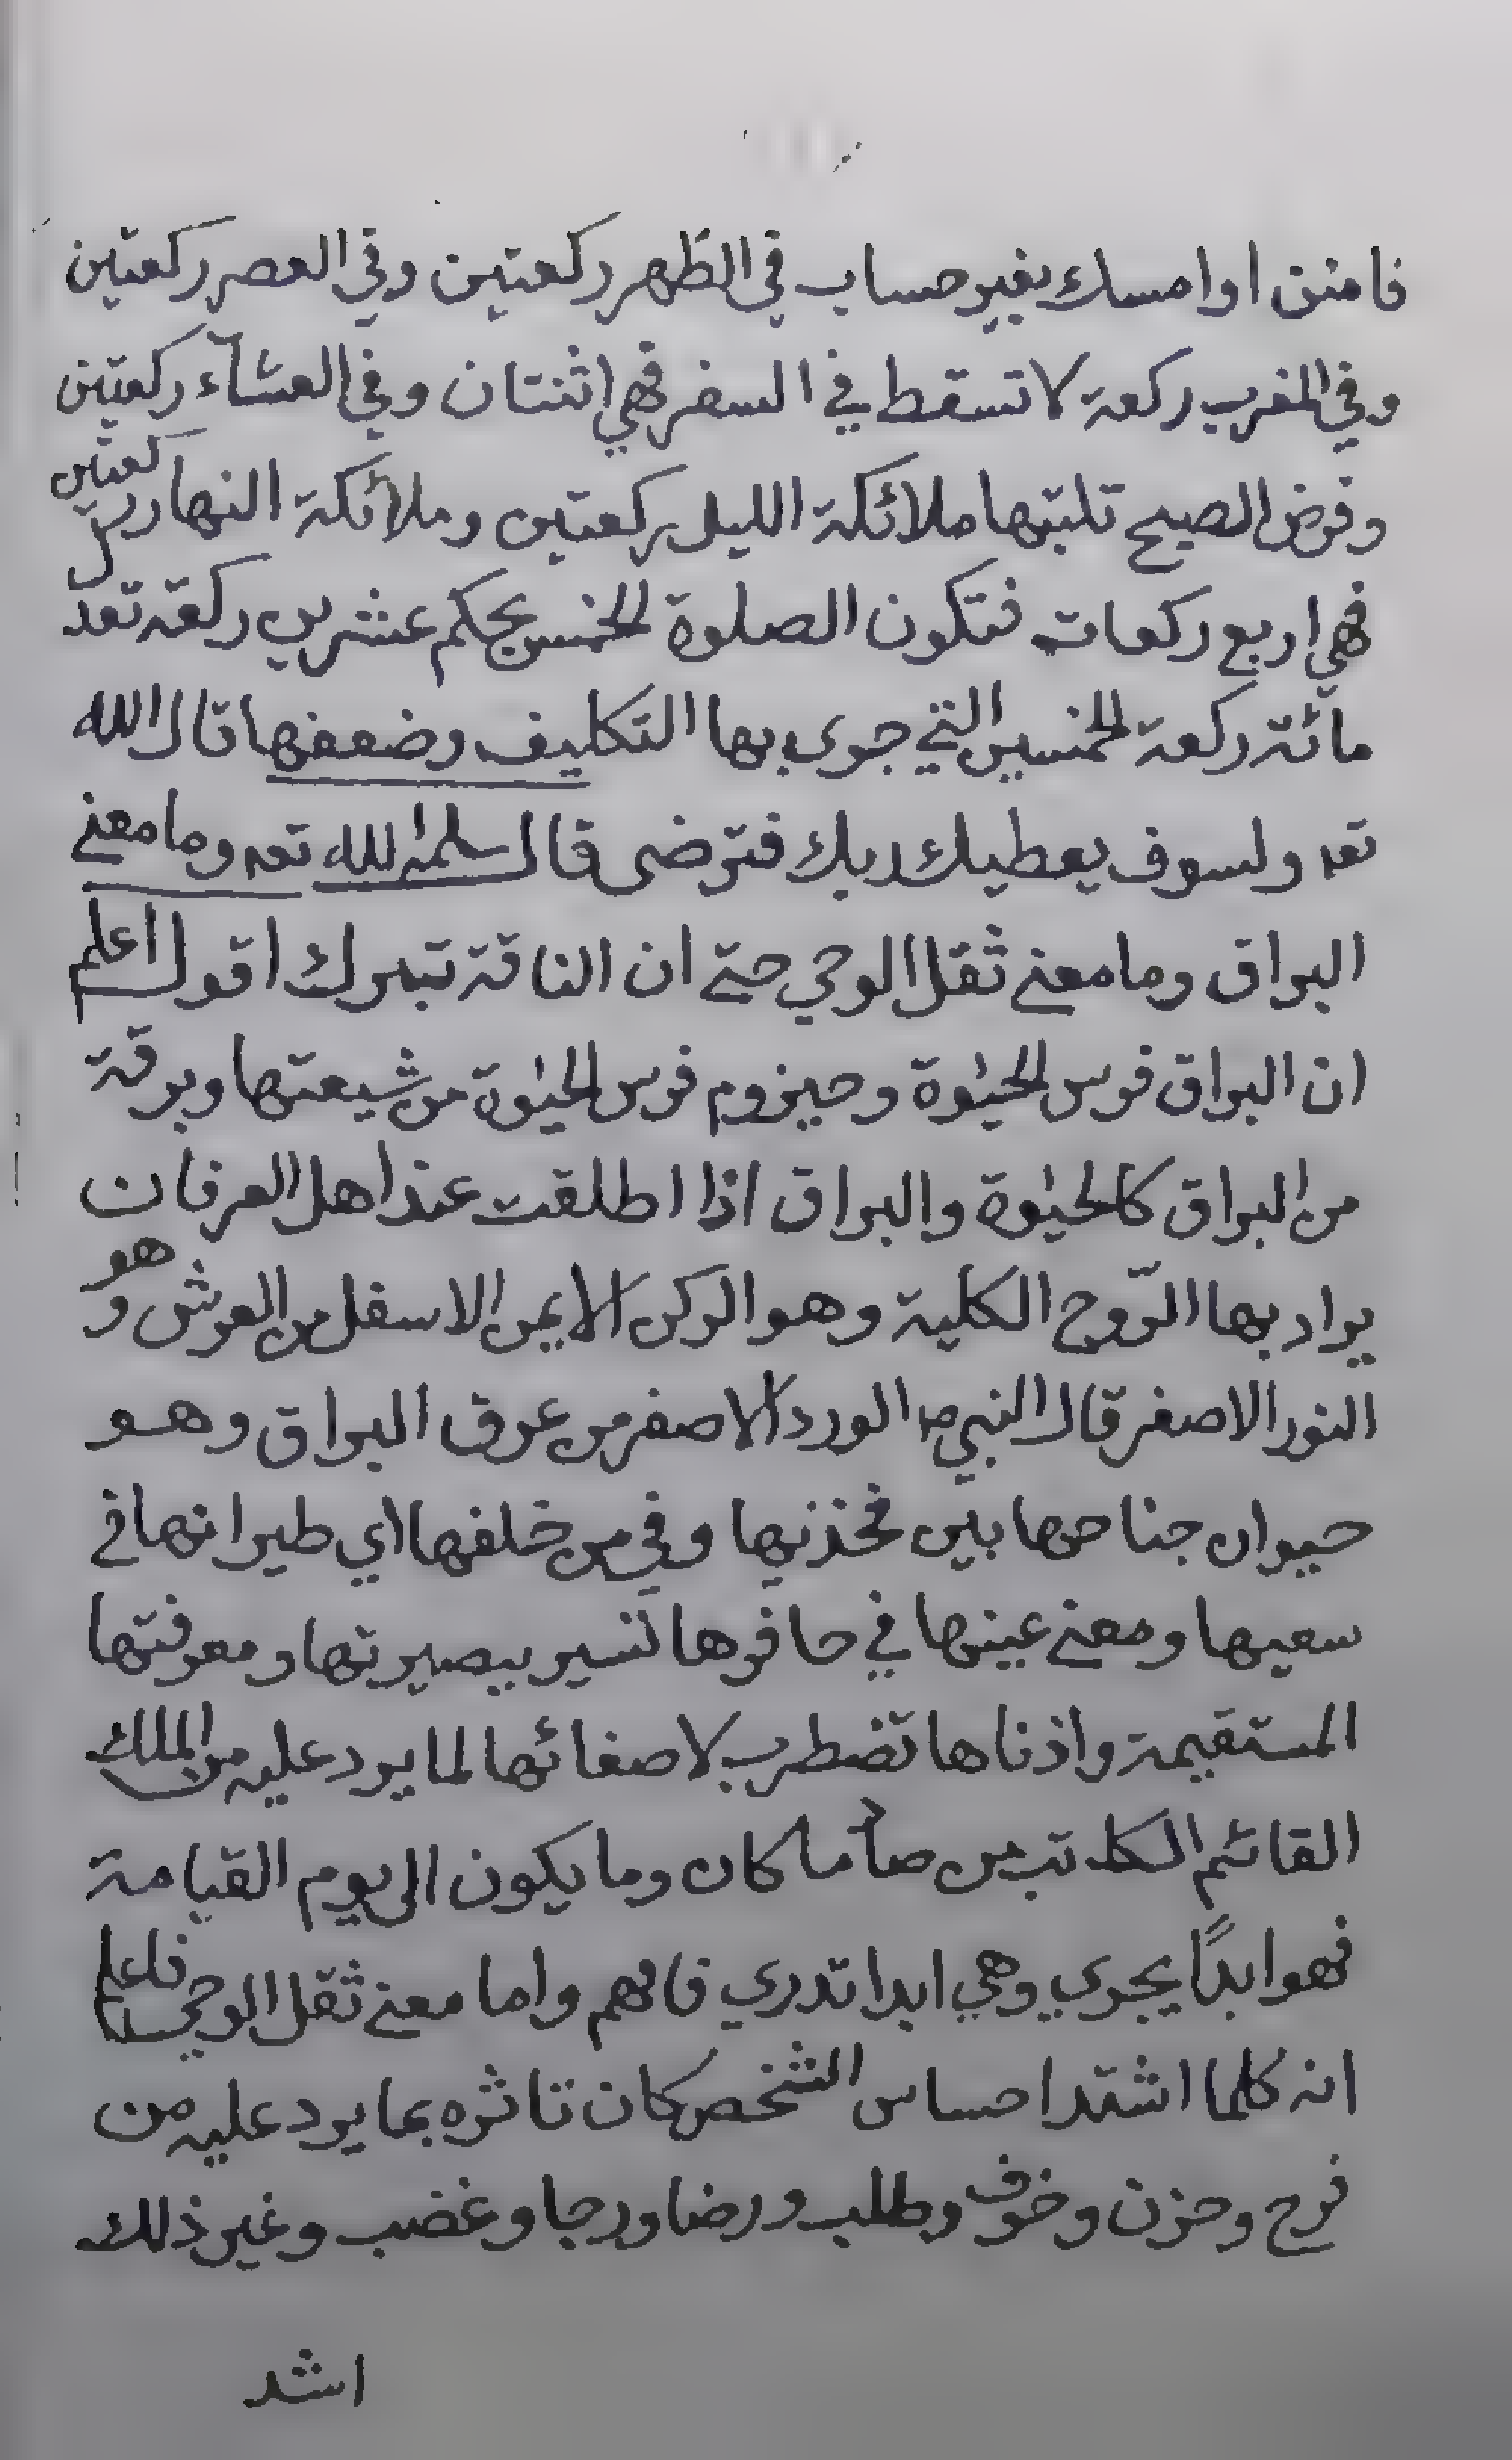 فامنن او امسك بغير حساب في الظهر ركعتين وفي العصر ركعتين
وفي المغرب ركعة لا تسقط في السفر فهي اثنتان وفي العشآء ركعتين
وفرض الصبح تلبتها ملائكة الليل ركعتين وملائكة النهار ركعتين
فهي اربع ركعات فتكون الصلوة الخمس بحكم عشرين ركعة تعد
مائة ركعة الخمسين التي جرى بها التكليف وضعفها قال الله
تعه ولسوف يعطيك ربك فترضى قال سلمه الله تعه وما معنى
البراق وما معنى ثقل الوحي حتى ان الناقة تبرك اقول اعلم
ان البراق فرس الحيوة وحيزوم فرس الحيوة من شيعتها وبرقة
من البراق كالحيوة والبراق اذا اطلقت عند اهل العرفان
يراد بها الرّوح الكلية وهو الركن الايمن الاسفل من العرش وهو
النور الاصفر قال النبي صـ الورد الاصفر من عرق البراق وهو
حيوان جناحها بين فخذيها وفي من خلفها اي طيرانها في
سعيها ومعنى عينها في حافرها تسير ببصيرتها ومعرفتها
المستقيمة واذناها تضطرب لاصغائها لما يرد عليه من الملك
القائم الكاتب من صآ ما كان وما يكون الى يوم القيامة
فهو ابدًا يجري وهي ابدا تدري فافهم واما معنى ثقل الوحي فاعلم
انه كلما اشتد احساس الشخص كان تاثره بما يرد عليه من
فرح وحزن وخوف وطلب ورضا ورجا وغضب وغير ذلك
اشد